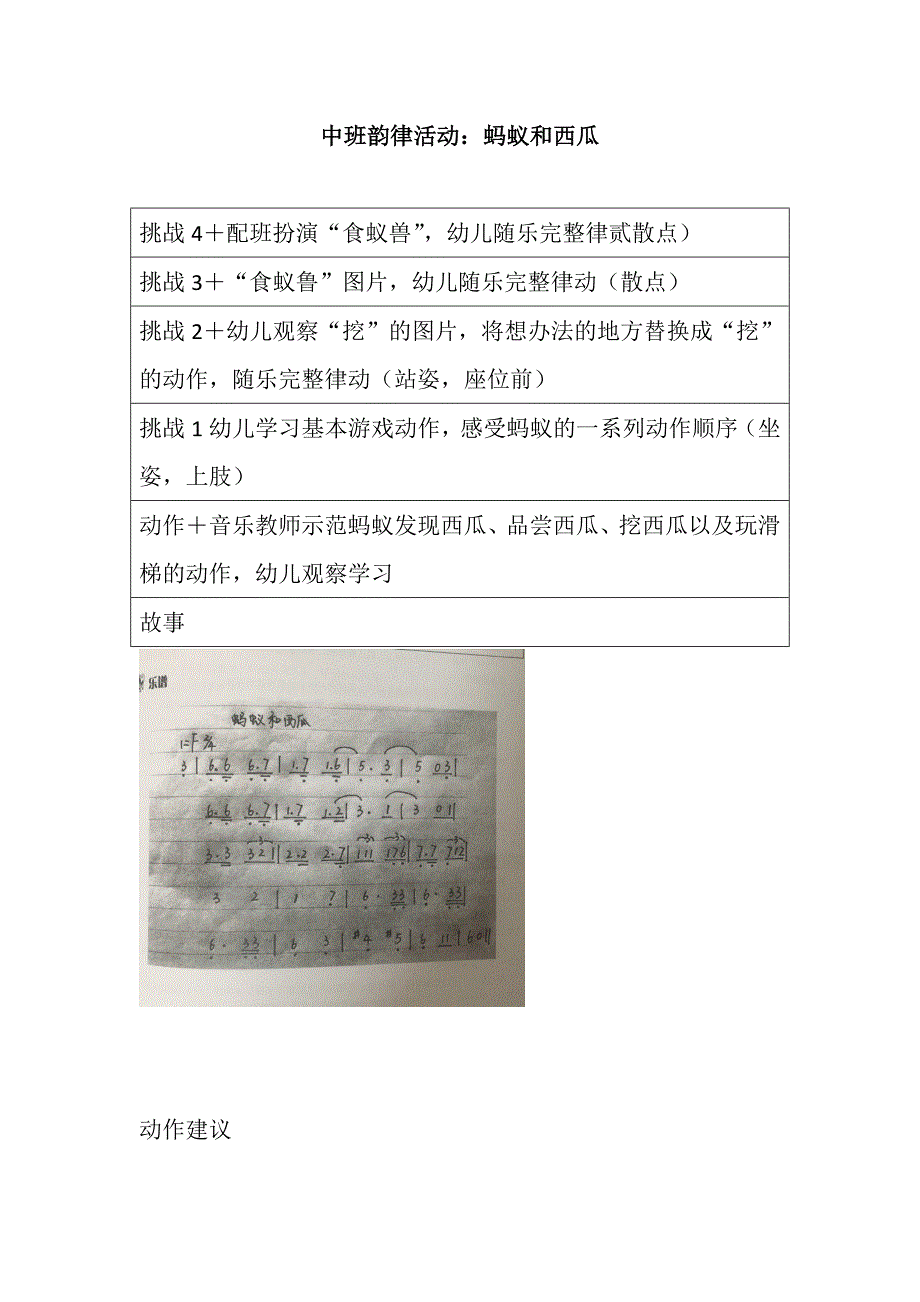 中班韵律活动：蚂蚁和西瓜
挑战 4＋配班扮演“食蚁兽”，幼儿随乐完整律贰散点）
挑战 3＋“食蚁鲁”图片，幼儿随乐完整律动（散点）
挑战 2＋幼儿观察“挖”的图片，将想办法的地方替换成“挖”
的动作，随乐完整律动（站姿，座位前）
挑战 1 幼儿学习基本游戏动作，感受蚂蚁的一系列动作顺序（坐
姿，上肢）
动作＋音乐教师示范蚂蚁发现西瓜、品尝西瓜、挖西瓜以及玩滑
梯的动作，幼儿观察学习
故事
乐谱
蚂蚁和西瓜
1=F 2/4
3 | 6.6 6.7 | 1.7 1.6 | 5. 3 | 5 03 |
6.6 6.7 | 1.7 1.2 | 3. 1 | 3 01 |
3.3 321 | 2.2 2.7 | 111 176 | 7.7 712 |
3 2 | 1 7 | 6. 33 | 6. 33 |
6. 33 | 6 3 | #4 #5 | 6 11 | 601 |
动作建议